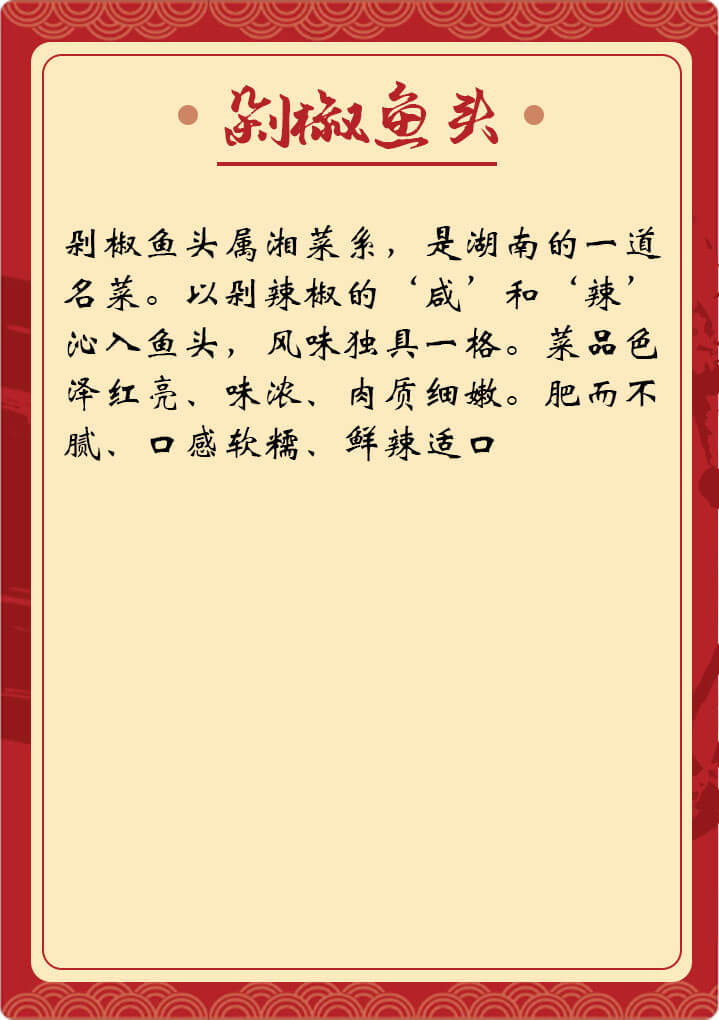 剁椒鱼头
剁椒鱼头属湘菜系，是湖南的一道
名菜。以剁辣椒的‘咸’和‘辣’
沁入鱼头，风味独具一格。菜品色
泽红亮、味浓、肉质细嫩。肥而不
腻、口感软糯、鲜辣适口